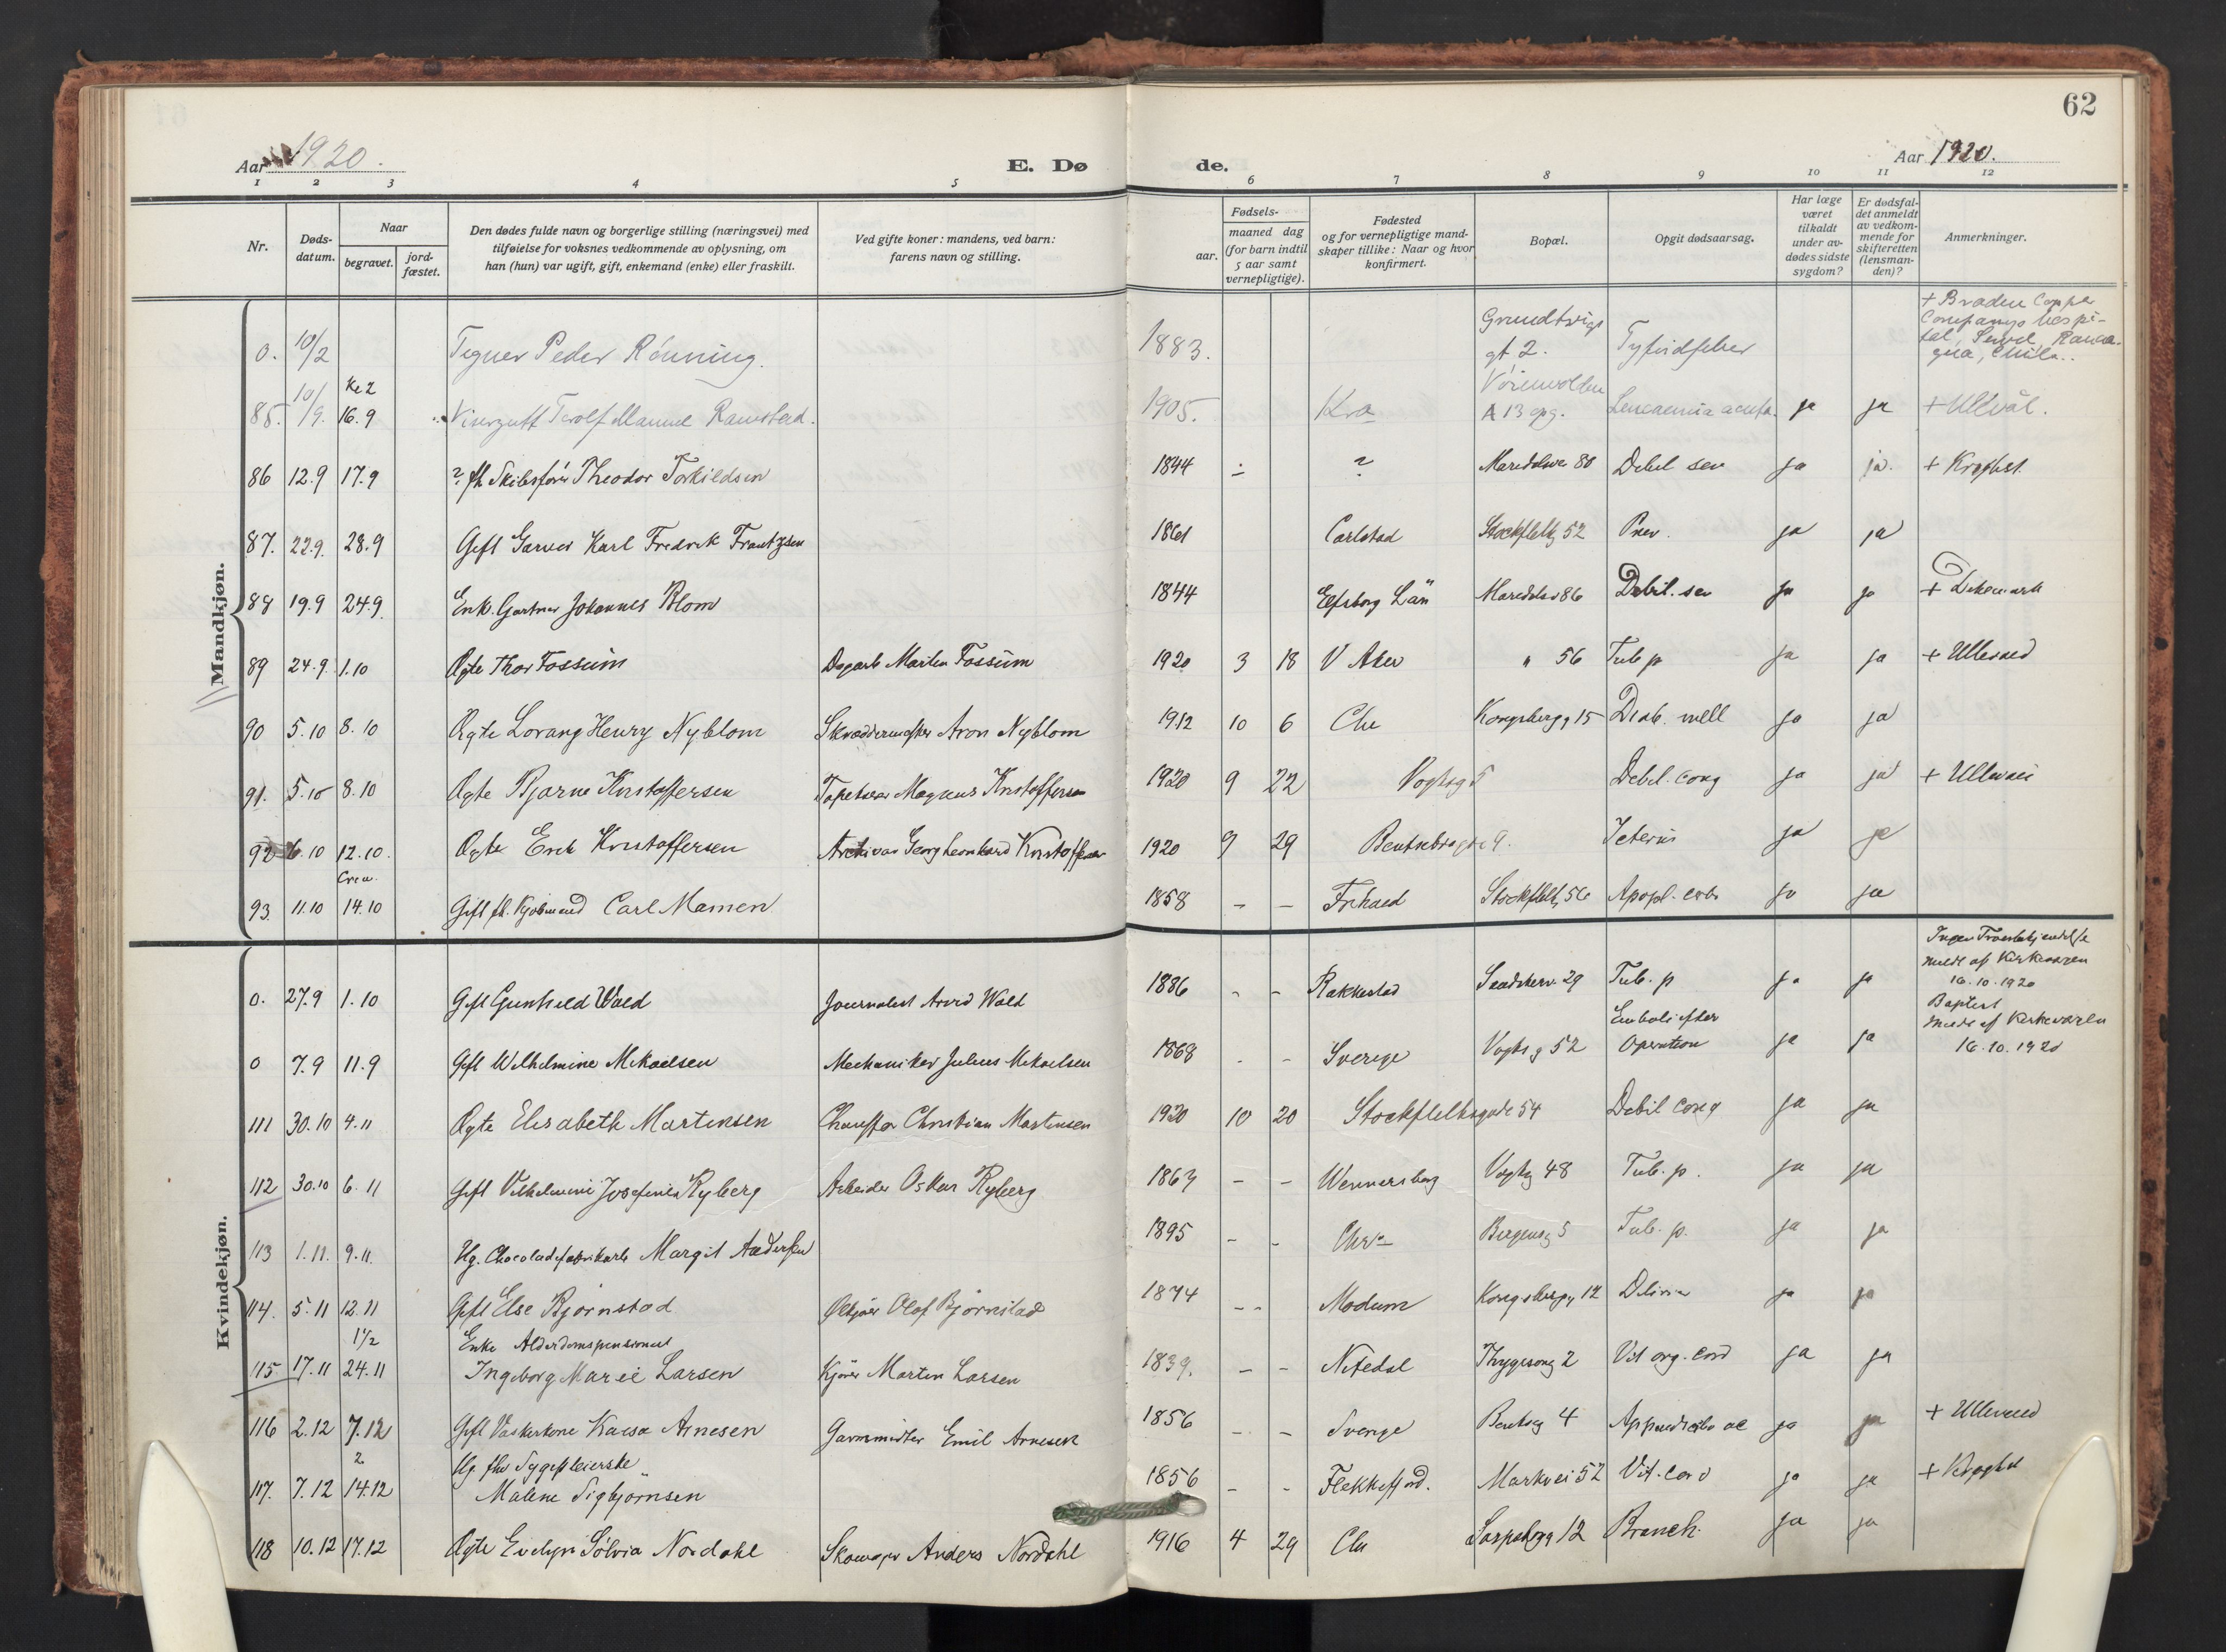 62
Aar 1920.
E. Dø de.
Aar 1920.
1 2 3 4 5 6 7 8 9 10 11 12
Nr.
Døds-
datum.
Naar
begravet.
jord-
fæstet.
Den dødes fulde navn og borgerlige stilling (næringsvei) med
tilføielse for voksnes vedkommende av oplysning, om
han (hun) var ugift, gift, enkemand (enke) eller fraskilt.
Ved gifte koner: mandens, ved barn:
farens navn og stilling.
Fødsels-
aar.
maaned dag
(for barn indtil
5 aar samt
vernepligtige).
Fødested
og for vernepligtige mand-
skaper tillike: Naar og hvor
konfirmert.
Bopæl.
Opgit dødsaarsag.
Har læge
været
tilkaldt
under av-
dødes sidste
sygdom?
Er dødsfal-
det anmeldt
av vedkom-
mende for
skifteretten
(lensman-
den)?
Anmerkninger.
Mandkjøn.
0. 10/2 Tegner Peder Rönning. 1883. Grundtvigs gt 2. Tyfoidfeber + Braden Copper Companys hospital, Sewel, Rancagua, Chile.
85. 10/9. 16.9 Visergutt Manuel Ramstad. 1905. Kra A 13 opg. Leucaemia acuta. ja ja + Ullevål.
86 12.9 17.9 ? fh Skibsfører Theodor Torkildsen 1844 ? Maridalsv 80 Debil sen ja ja. + Kroghst.
87. 22.9. 28.9 Gift Garver Karl Fredrik Frantzsen 1861 Carlstad Stockfletg 52 Pnev. ja ja
88 19.9 24.9. Enk. Gartner Johannes Blom 1844 Elfsborg Län Maridalsv 86 Debil. sen ja ja + Dikemark
89 24.9. 1.10 Ægte Thor Fossum Dagarb Martin Fossum 1920 3 18 V Aker " 56 Tub p ja ja + Ullevaal
90 5.10 8.10 Ægte Lorang Henry Nyblom Skræddermester Aron Nyblom 1912 10 6 Chr Kongsbergg 15 Diab. mell ja ja
91. 5.10 8.10 Ægte Bjarne Kristoffersen Tapetserer Magnus Kristoffersen 1920 9 22 Vogtsg 5 Debil. cong ja ja + Ullevaal
92 6.10 12.10. Ægte Erik Kristoffersen Georg Leonhard Kristoffersen 1920 9 29 Bentsebrogt 9. Icterus ja ja
Crem.
93. 11.10 14.10 Gift fh. Kjøbmand Carl Mamen 1858 - - Frhald Stockfletg 56 Apopl. cerb ja ja
Kvindekjøn.
0. 27.9 1.10 Gift Gunhild Wold Journalist Arvid Wold 1886 - - Rakkestad 29 Tub. p ja ja Ingen Trosbekjendelse meldt af Kirkeværgen 16.10.1920
0 7.9 11.9 Gift Wilhelmine Mikaelsen Mechaniker Julius Mikaelsen 1868 - - Sverige Vogts g 52 Emboli efter Operation ja ja Baptist meldt af Kirkeværgen 16.10.1920
111 30.10 4.11 Ægte Elisabeth Martinsen Chauffør Christian Martinsen 1920 10 20 Stockfletsgade 54 Debil cong ja ja
112 30.10 6.11 Gift Vilhelmine Josefine Ryberg Arbeider Oskar Ryberg 1863 - - Wennersborg Vogtsg 48 Tub. p. ja ja
113 1.11. 9.11. Ug. Chocoladefabrikarb Margit Andersen 1895 - - Chr Bergensg 5 Tub. p. ja ja
114. 5.11 12.11 Gift Else Bjørnstad Ølkjører Olof Bjørnstad 1874 - - Modum Kongsbergg 12 ja ja
1 1/2 Enke Alderdomspensionist
115. 17.11 24.11 Ingeborg Marie Larsen Kjører Martin Larsen 1839. - - Nitedal Thygesong 2 Vit org. cord ja ja
116 2.12 7.12 Gift Vaskerkone Kaisa Arnesen Emil Arnesen 1856 - - Sverige Bentseg 4 ja ja + Ullevaal
2. Ug. fhv Sygepleierske
117. 7.12 14.12 Malene Sigbjørnsen 1856 - - Flekkefjord. Markvei 52 Vit. cord ja ja + Kroghst
118 10.12 17.12 Ægte Evelyn Sølvia Nordahl Skomager Anders Nordahl 1916 4 29 Chr Sarpsborgg 12 Bronch. ja ja